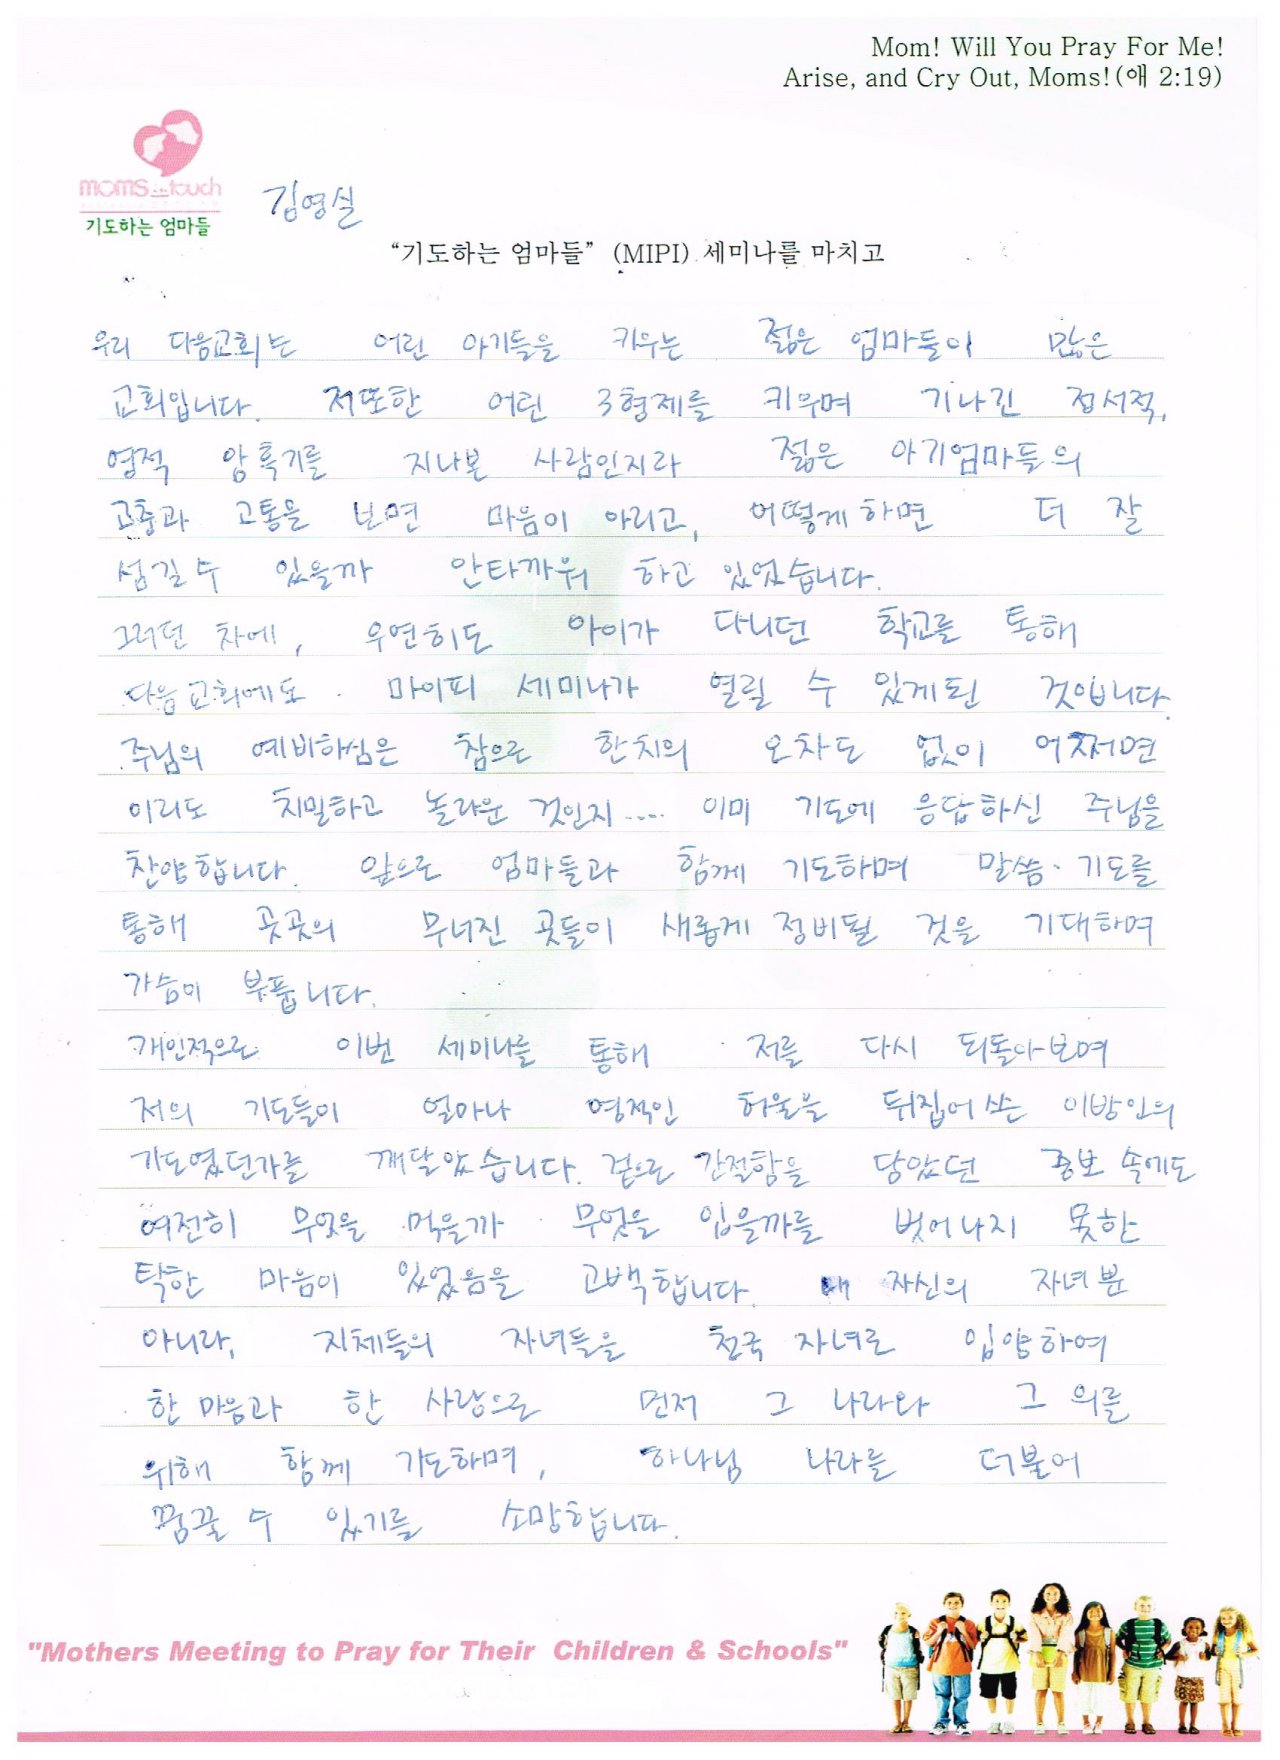 Mom! Will You Pray For Me!
Arise, and Cry Out, Moms!(애 2:19)
moms in touch
기도하는 엄마들
김영실
“기도하는 엄마들” (MIPI) 세미나를 마치고
우리 다음교회는 어린 아기들을 키우는 젊은 엄마들이 많은
교회입니다. 저또한 어린 3형제를 키우며 기나긴 정서적,
영적 암흑기를 지나본 사람인지라 젊은 아기엄마들의
고충과 고통을 보면 마음이 아리고, 어떻게하면 더 잘
섬길수 있을까 안타까워 하고 있었습니다.
그러던 차에, 우연히도 아이가 다니던 학교를 통해
다음교회에도 마이피 세미나가 열릴 수 있게된 것입니다.
주님의 예비하심은 참으로 한치의 오차도 없이 어쩌면
이리도 치밀하고 놀라운 것인지.... 이미 기도에 응답하신 주님을
찬양합니다. 앞으로 엄마들과 함께 기도하며 말씀·기도를
통해 곳곳의 무너진 곳들이 새롭게 정비될 것을 기대하며
가슴이 부풉니다.
개인적으로 이번 세미나를 통해 저를 다시 되돌아보며
저의 기도들이 얼마나 영적인 허울을 뒤집어쓰은 이방인의
기도였던가를 깨달았습니다. 겉으로 간절함을 담았던 중보 속에도
여전히 무엇을 먹을까 무엇을 입을까를 벗어나지 못한
탁한 마음이 있었음을 고백합니다. 내 자신의 자녀뿐
아니라, 지체들의 자녀들을 천국 자녀로 입양하여
한 마음과 한 사랑으로 먼저 그 나라와 그 의를
위해 함께 기도하며, 하나님 나라를 더불어
꿈꿀 수 있기를 소망합니다.
"Mothers Meeting to Pray for Their Children & Schools"